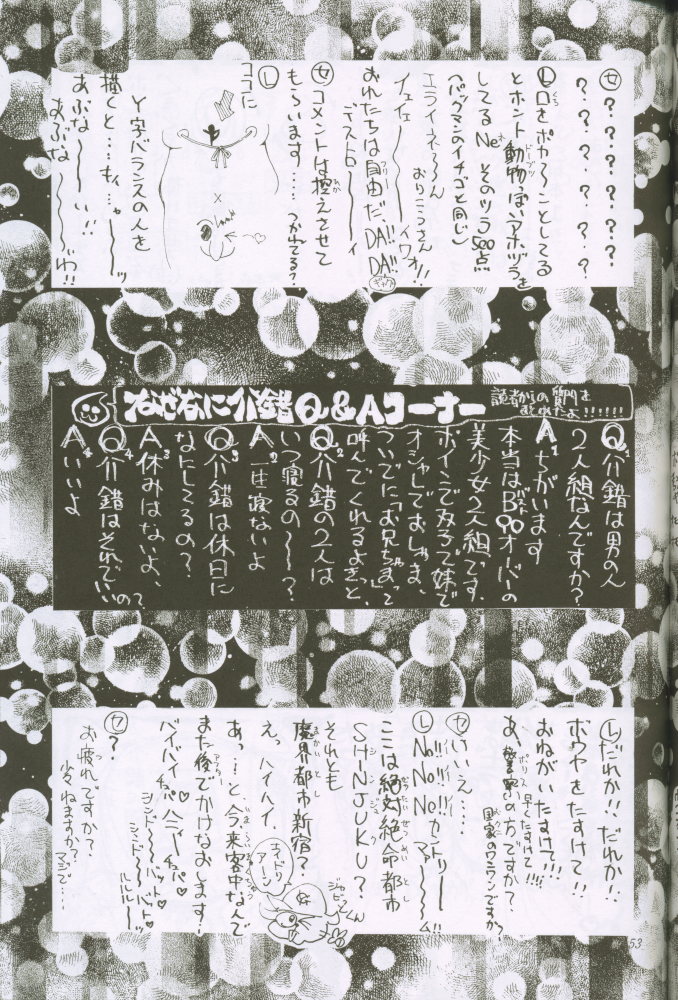 セ ？？？？？？
？？？？？？？
L 口をポカ〜〜ことしてる
とホント動物っぽいアホヅラを
してるNe そのツラ500点
へパックマンのイチゴと同じ
エライネ〜〜ん おりこうさん
イェイェ〜〜〜 イワオ!!
おれたちは自由だ、DA!! DA!!
デストロ〜〜ィ
セ コメントは控えさせて
もらいます…… つかれてる？
L
ココに
Y字バランスの人を
描くと…もィ…ャ〜〜〜ッ
あぶな〜〜〜い!!
あぶな〜〜〜〜わ!!
なぜなに介錯Q&Aコーナー
読者からの質問をまとめたよ!!!!!!
Q1 介錯は男の人
2人組なんですか？
A1 ちがいます
本当はB90オーバーの
美少女2人組です。
ボインでメガネで妹で
オシャレでおしゃま、
ついでに「お兄ちゃま」って
呼んでくれるよきっと、
Q2 介錯の2人は
いつ寝るの〜〜？
A2 は寝ないよ
Q3 介錯は休日に
なにしてるの？
A3 休みはないよ、
Q4 介錯はそれでいいの？
A4 いいよ
L だれか!! だれか!!
ボウヤをたすけて!!
おねがいたすけて!!!
早くたすけて!!!
あ、警察の方ですか？
国家のワニランですか？
セ いいえ……
L No!! No!! No!! カントリー
マァ〜〜〜ム!!
ここは絶対絶命都市
SHINJUKU？
それとも
魔界都市新宿？
えっ、ハイハイ
あっ…と、今、来客中なんで
また後でかけなおします！
バイハイ チャパ♡ ハニー♡ チャパ♡
シンド〜〜バット♡
シンド〜〜バット♡
ルルルーッ
エイドリアーン
ジャビットくん
セ ？
お疲れですか？
少しねますか？
マジで…
53